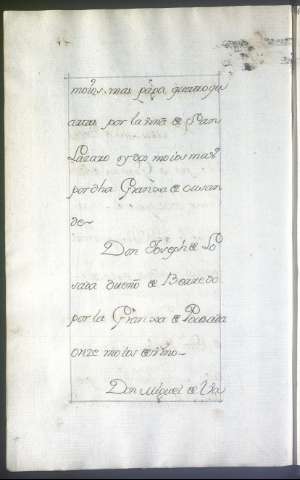 moios. mas paga quatro qu
artas por la viña de San
Lazaro oydos moios mas
por dha Granxa de cusan
de~
Don Joseph de Lo
sada dueño de Banedo
por la Granxa de Pousada
onze moios de vino~
Don Miguel de Va